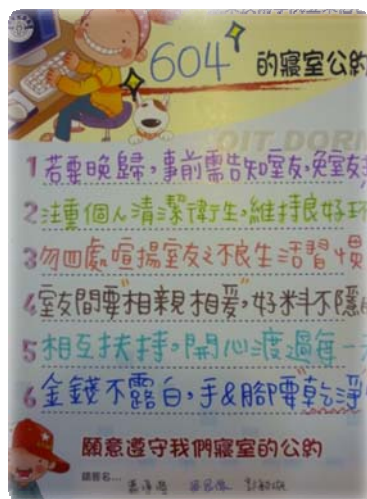 604 的寢室公約
OIT DORM
1 若要晚歸，事前需告知室友，免室友
2 注重個人清潔衛生，維持良好環
3 勿四處喧揚室友之不良生活習慣
4 室友間要"相親相愛"，好料不隱
5 相互扶持，開心渡過每一天
6 金錢不露白，手&腳要"乾淨
願意遵守我們寢室的公約
請簽名...